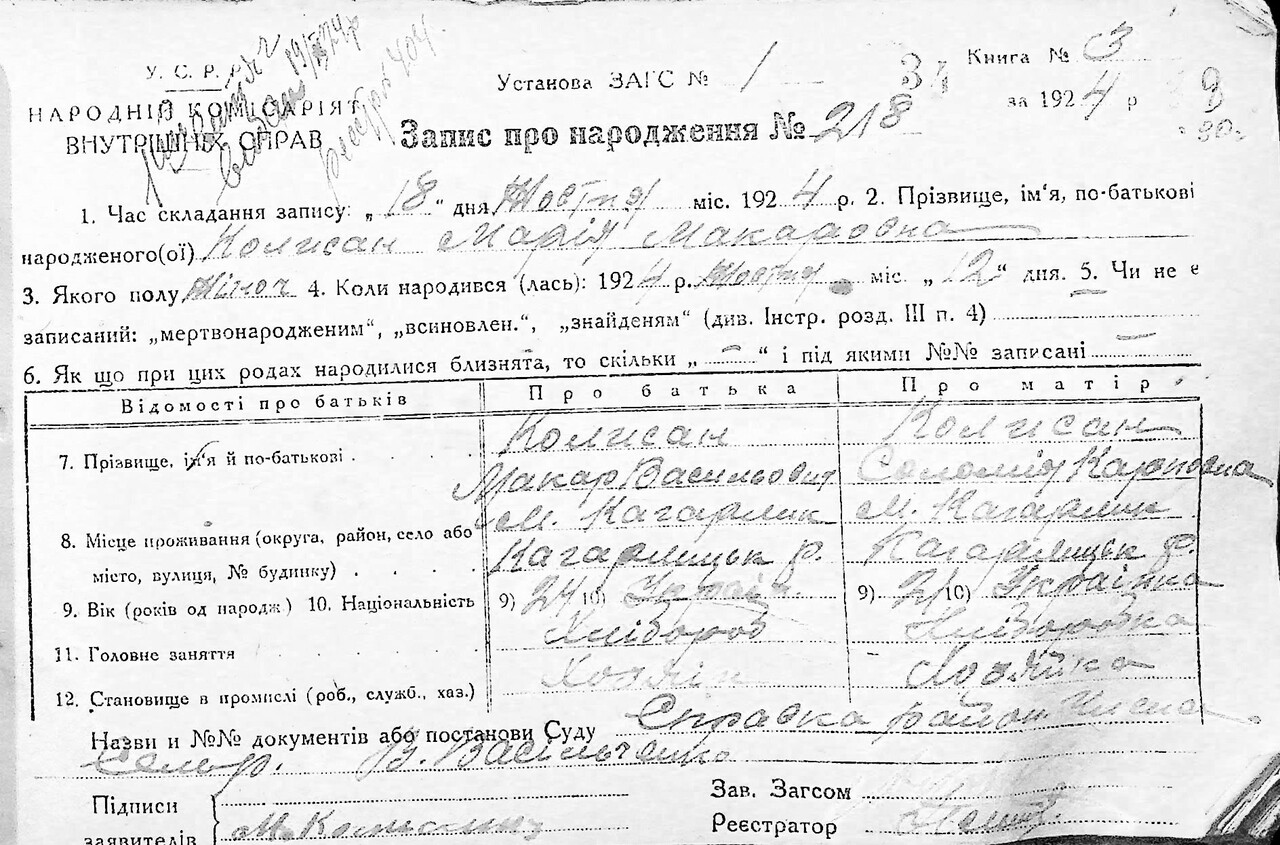 У. С. Р.
НАРОДНІЙ КОМІСАРІЯТ
ВНУТРІШНІХ СПРАВ
19/III 74р
Установа ЗАГС № 1
34
Книга № 3
за 1924 р
Запис про народження № 218
1. Час складання запису: „18“ дня Жостня міс. 1924 р. 2. Прізвище, ім‘я, по-батькові
народженого(ої) Колисан Марія Макаровна
3. Якого полу Жіноч 4. Коли народився (лась): 1924 р. Жостня міс. „12“ дня. 5. Чи не є
записаний: „мертвонародженим“, „всиновлен.“, „знайденям“ (див. Інстр. розд. III п. 4) —
6. Як що при цих родах народилися близнята, то скільки „—“ і під якими №№ записані —
Відомості про батьків Про батька Про матір
7. Прізвище, ім‘я й по-батькові Колисан Колисан
Макар Васильович Соломія Карповна
8. Місце проживання (округа, район, село або М. Кагарлик М. Кагарлик
місто, вулиця, № будинку) Кагарлицьк р. Кагарлицьк р.
9. Вік (років од народж) 10. Національність 9) 24 10) Україн. 9) 21 10) Українка
11. Головне заняття Хлібороб Хліборобка
12. Становище в промислі (роб., служб., хаз.) Хозяїн Хозяйка
Назви и №№ документів або постанови Суду Справка район.
В. Васільченко
Підписи
заявителів
Зав. Загсом
Реєстратор